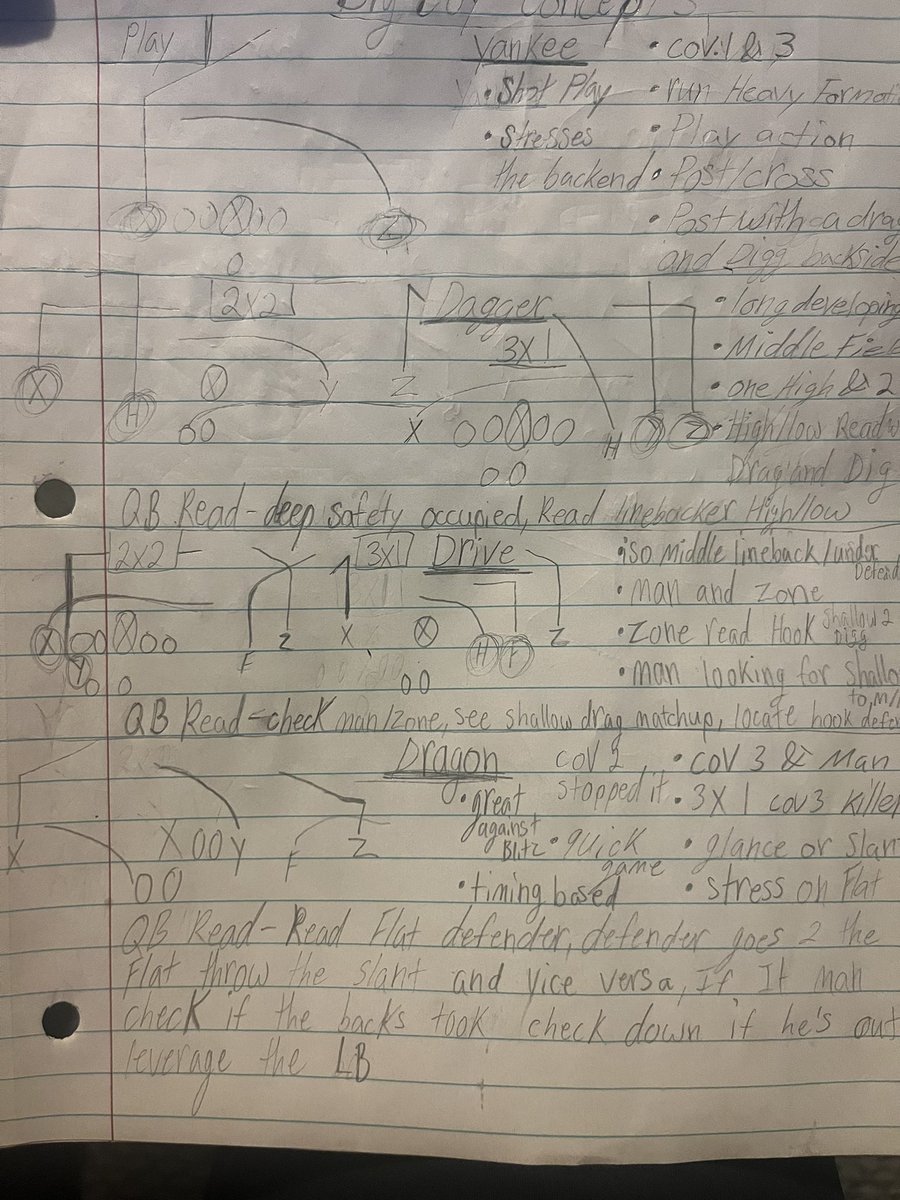 Big Boy Concepts
Play
Yankee • cov.1 & 3
• Shot Play • run Heavy Format
• Stresses • Play action
the backend • Post/cross
X OOXOO Z • Post with a drag
O and Digg backside
2X2 Dagger • long developing
3X1 • Middle Field
X H X Y Z • one High & 2
OO X OOXOO H Y Z • High/low Read w
OO Drag and Dig
QB Read - deep safety occupied, Read linebacker High/low
2X2 3X1 Drive • iso Middle lineback/under
Defend
• man and zone
X OOXOO F Z X X H F Z • Zone read Hook shallow 2
Digg
Y O O OO • man looking for shallo
to, m/
QB Read - check man/zone, see shallow drag matchup, locate hook defen
Dragon cov 2 • cov 3 & Man
• great stopped it • 3X1 cov3 Killer
against
X XOOY F Z Blitz • quick game • glance or slan
OO • timing based • stress on Flat
QB Read - Read Flat defender, defender goes 2 the
Flat throw the slant and vice versa, If It man
check if the backs took check down if he's out
leverage the LB